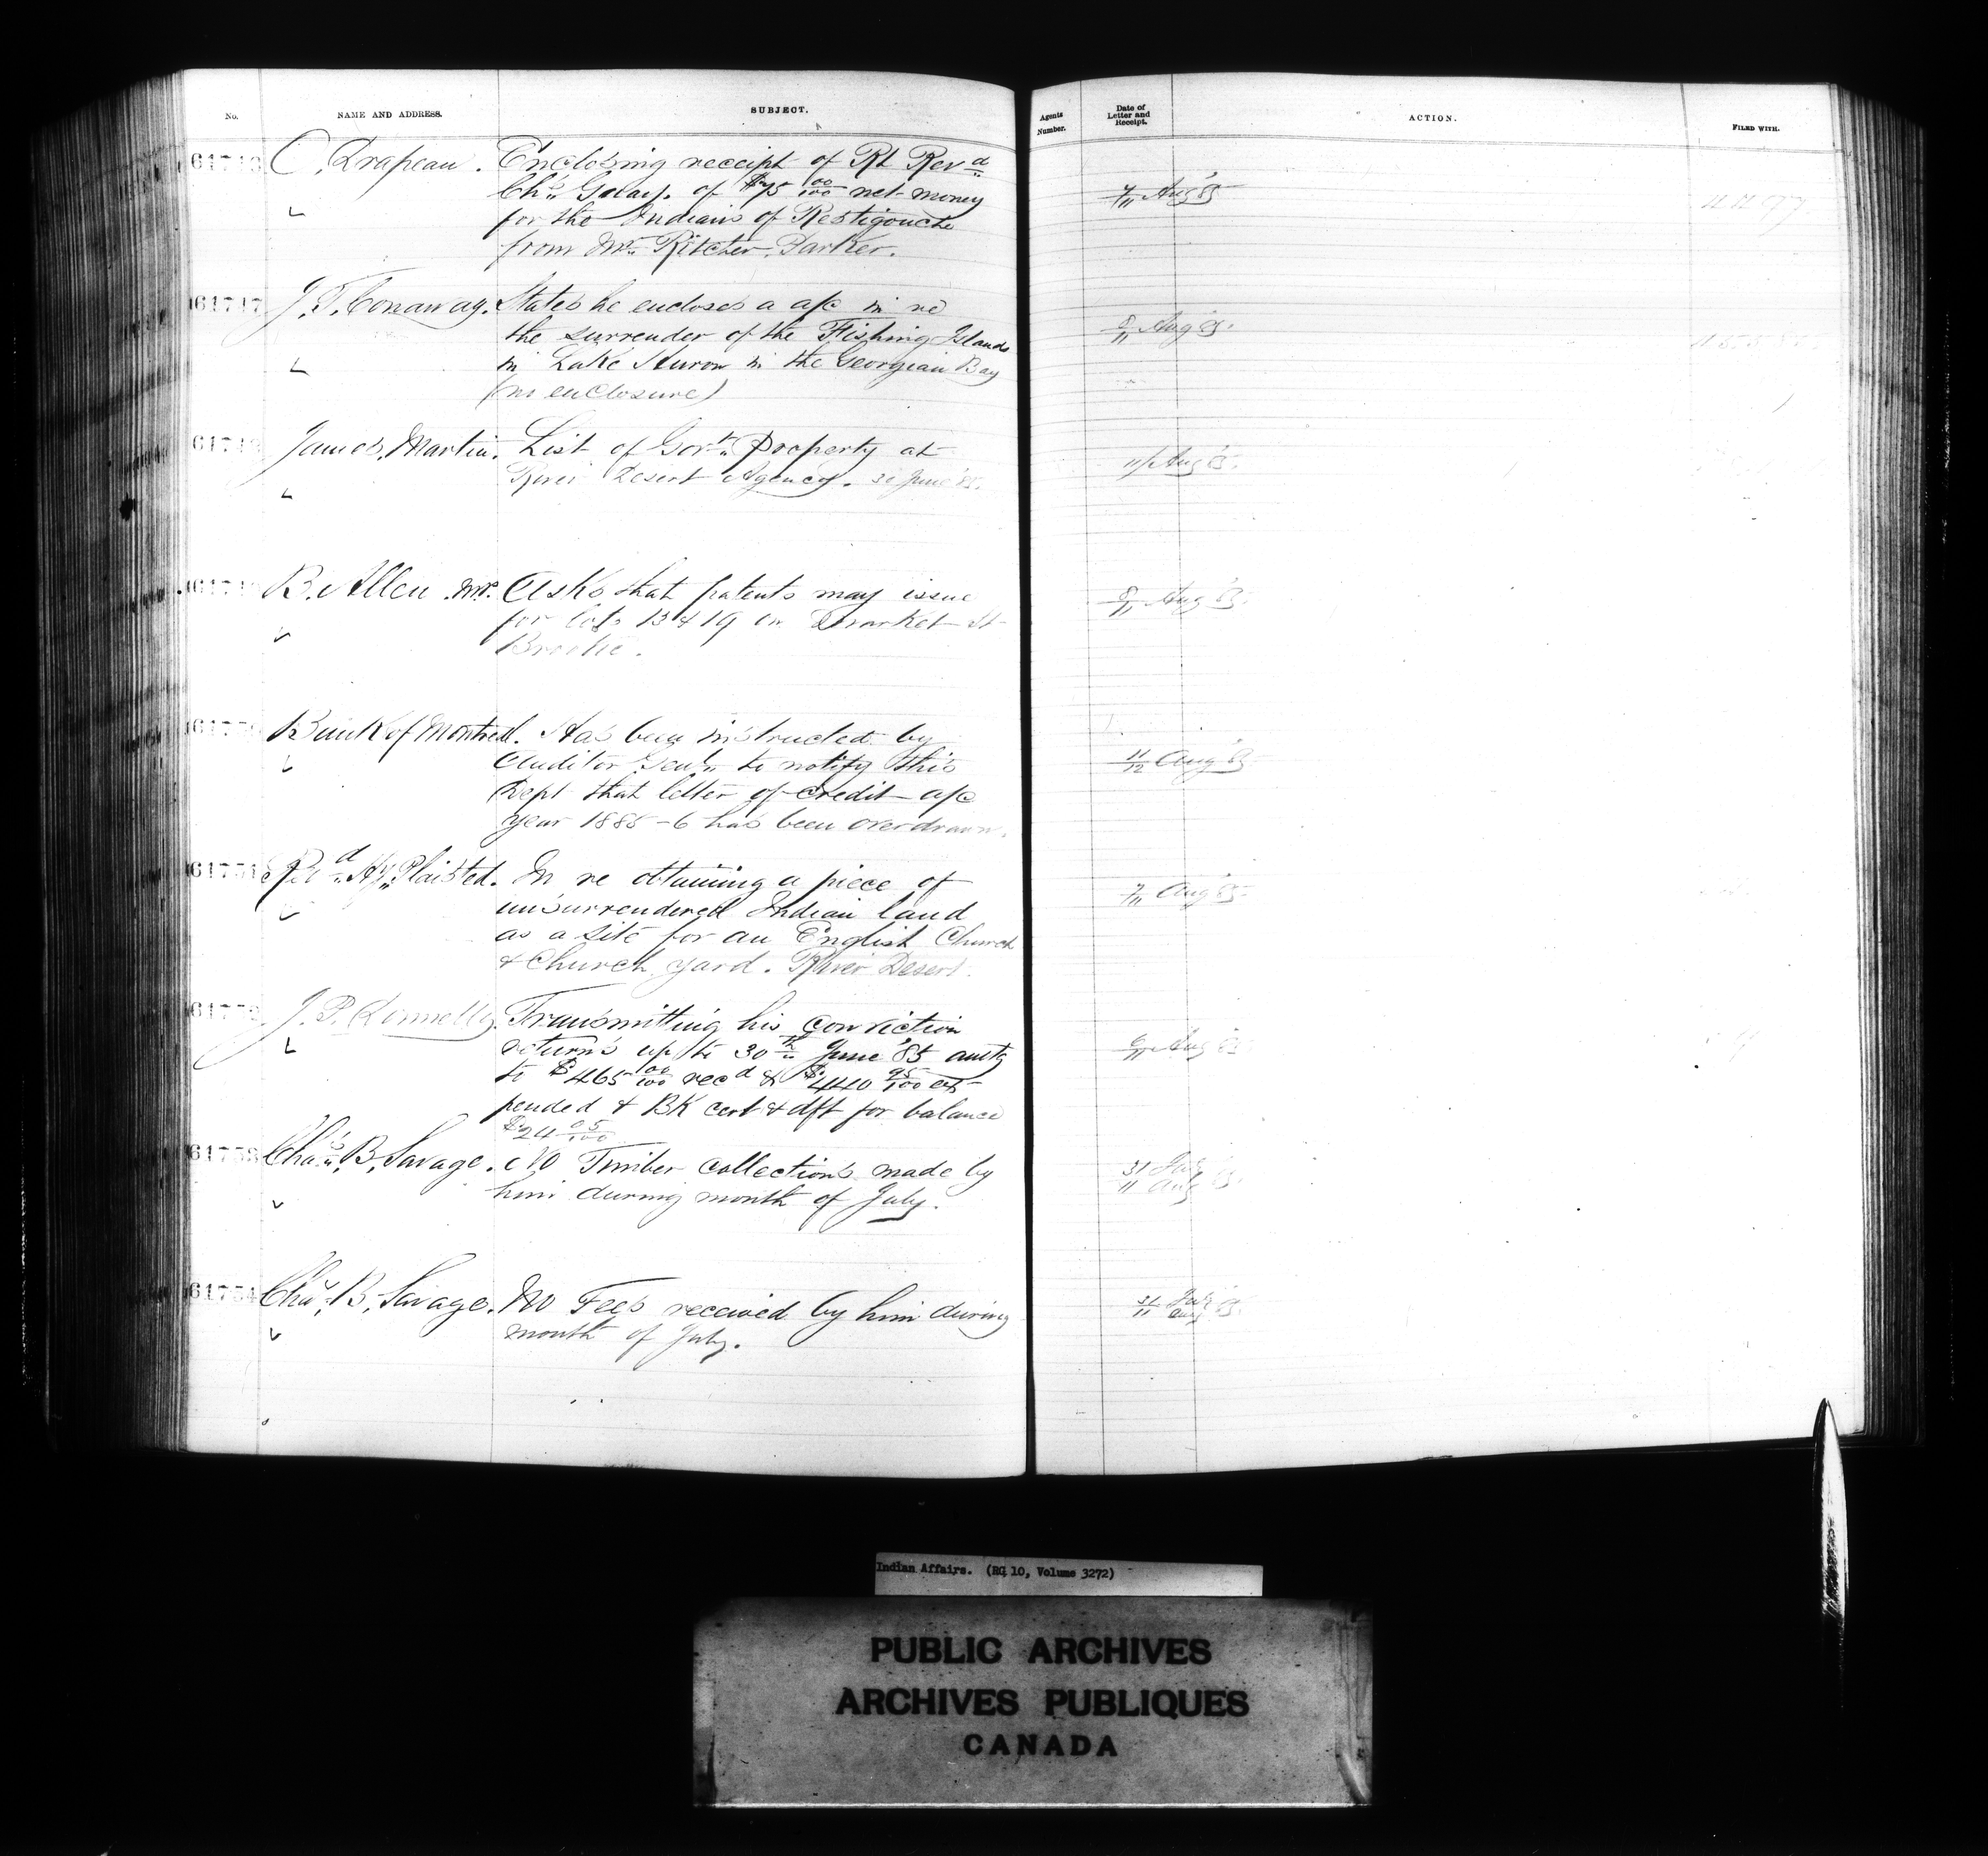 No. NAME AND ADDRESS. SUBJECT. Agents Number. Date of Letter and Receipt. ACTION. FILED WITH.
C. Drapeau. Enclosing receipt of Rt Revd
Chs of $75 00/100 net money 7/11 Aug 85
for the Indians of Restigouche
from Mr Ritcher Parker.
61747 J. T. Conaway. States he encloses a a/c in re
the surrender of the Fishing Islands 8/11 Aug 85.
in Lake Huron in the Georgian Bay
(no enclosure)
James Martin. List of Govt. Property at 11/ Aug 85.
River Desert Agency. 30 June 85.
B. Allen Asks that patents may issue 8/11 Aug 85.
for lots 13 & 19 on St
Brooke.
Bank of Montreal. Has been instructed by
Auditor Genl. to notify this 11/12 Aug 85
Dept that letter of credit a/c
year 1885-6 has been overdrawn.
61751 Revd Hy. Plaisted. In re obtaining a piece of 7/11 Aug 85
unsurrendered Indian land
as a site for an English Church
& Church yard. River Desert.
61752 J. P. Donnelly. Transmitting his conviction
returns up to 30th June '85 amtg Aug 85
to $465 00/100 recd & $440 95/100 ex-
pended & BK cert & dft for balance
$24 05/100
61753 Chas. B. Savage. No Timber collections made by 31 July
him during month of July. 11 Aug 85.
61754 Chas. B. Savage. No Fees received by him during 31/11 July Aug 85.
month of July.
Indian Affairs. (RG 10, Volume 3272)
PUBLIC ARCHIVES
ARCHIVES PUBLIQUES
CANADA